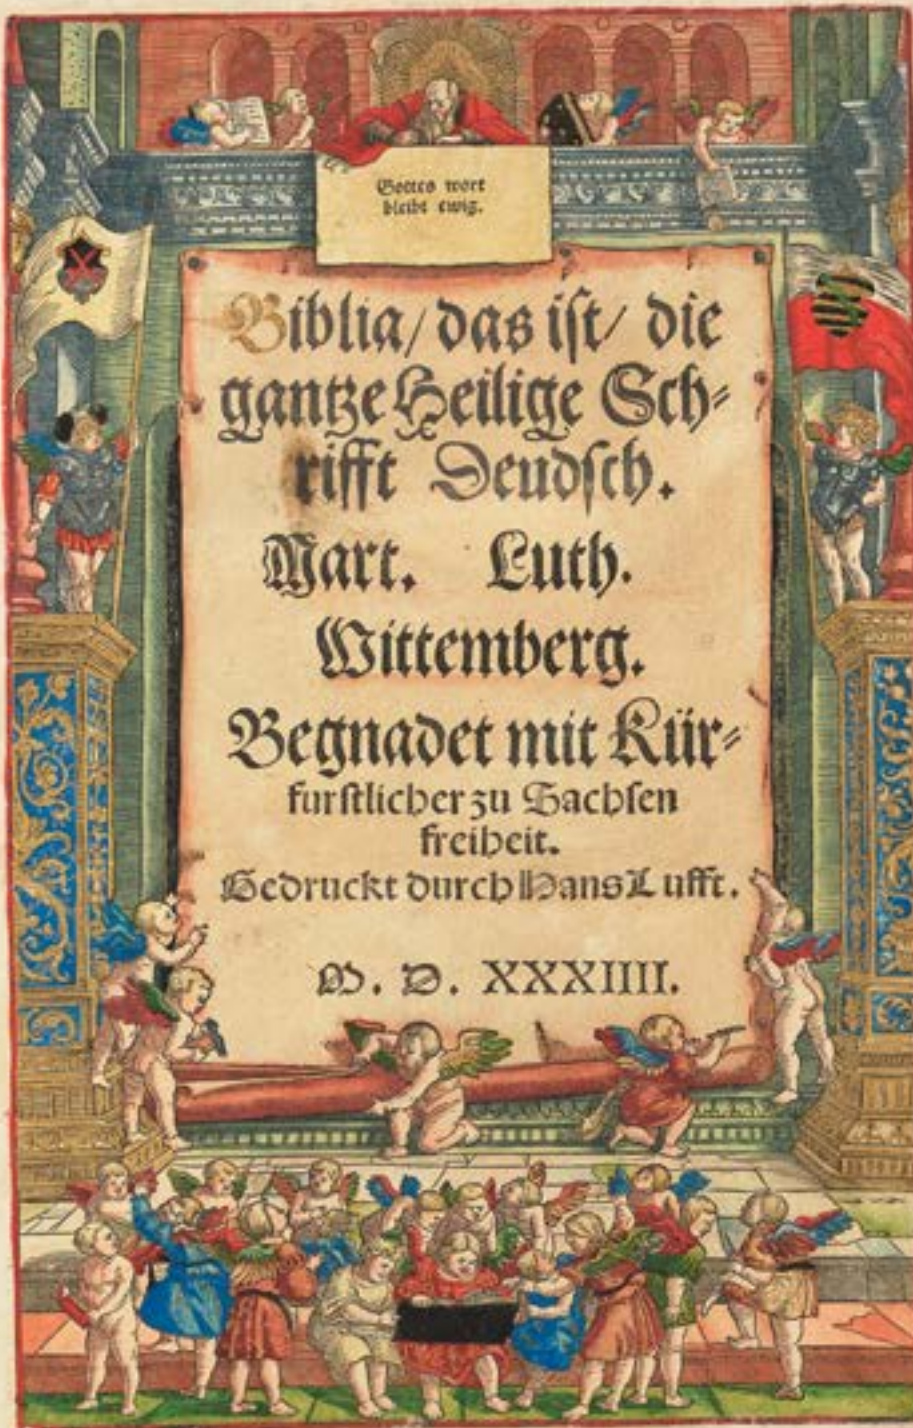 Gottes wort
bleibt ewig.
Biblia/ das iſt/ die
gantze Heilige Sch⸗
rifft Deudſch.
Mart. Luth.
Wittemberg.
Begnadet mit Kür⸗
furſtlicher zu Sachſen
freiheit.
Gedruckt durch Hans Lufft.
M. D. XXXIIII.